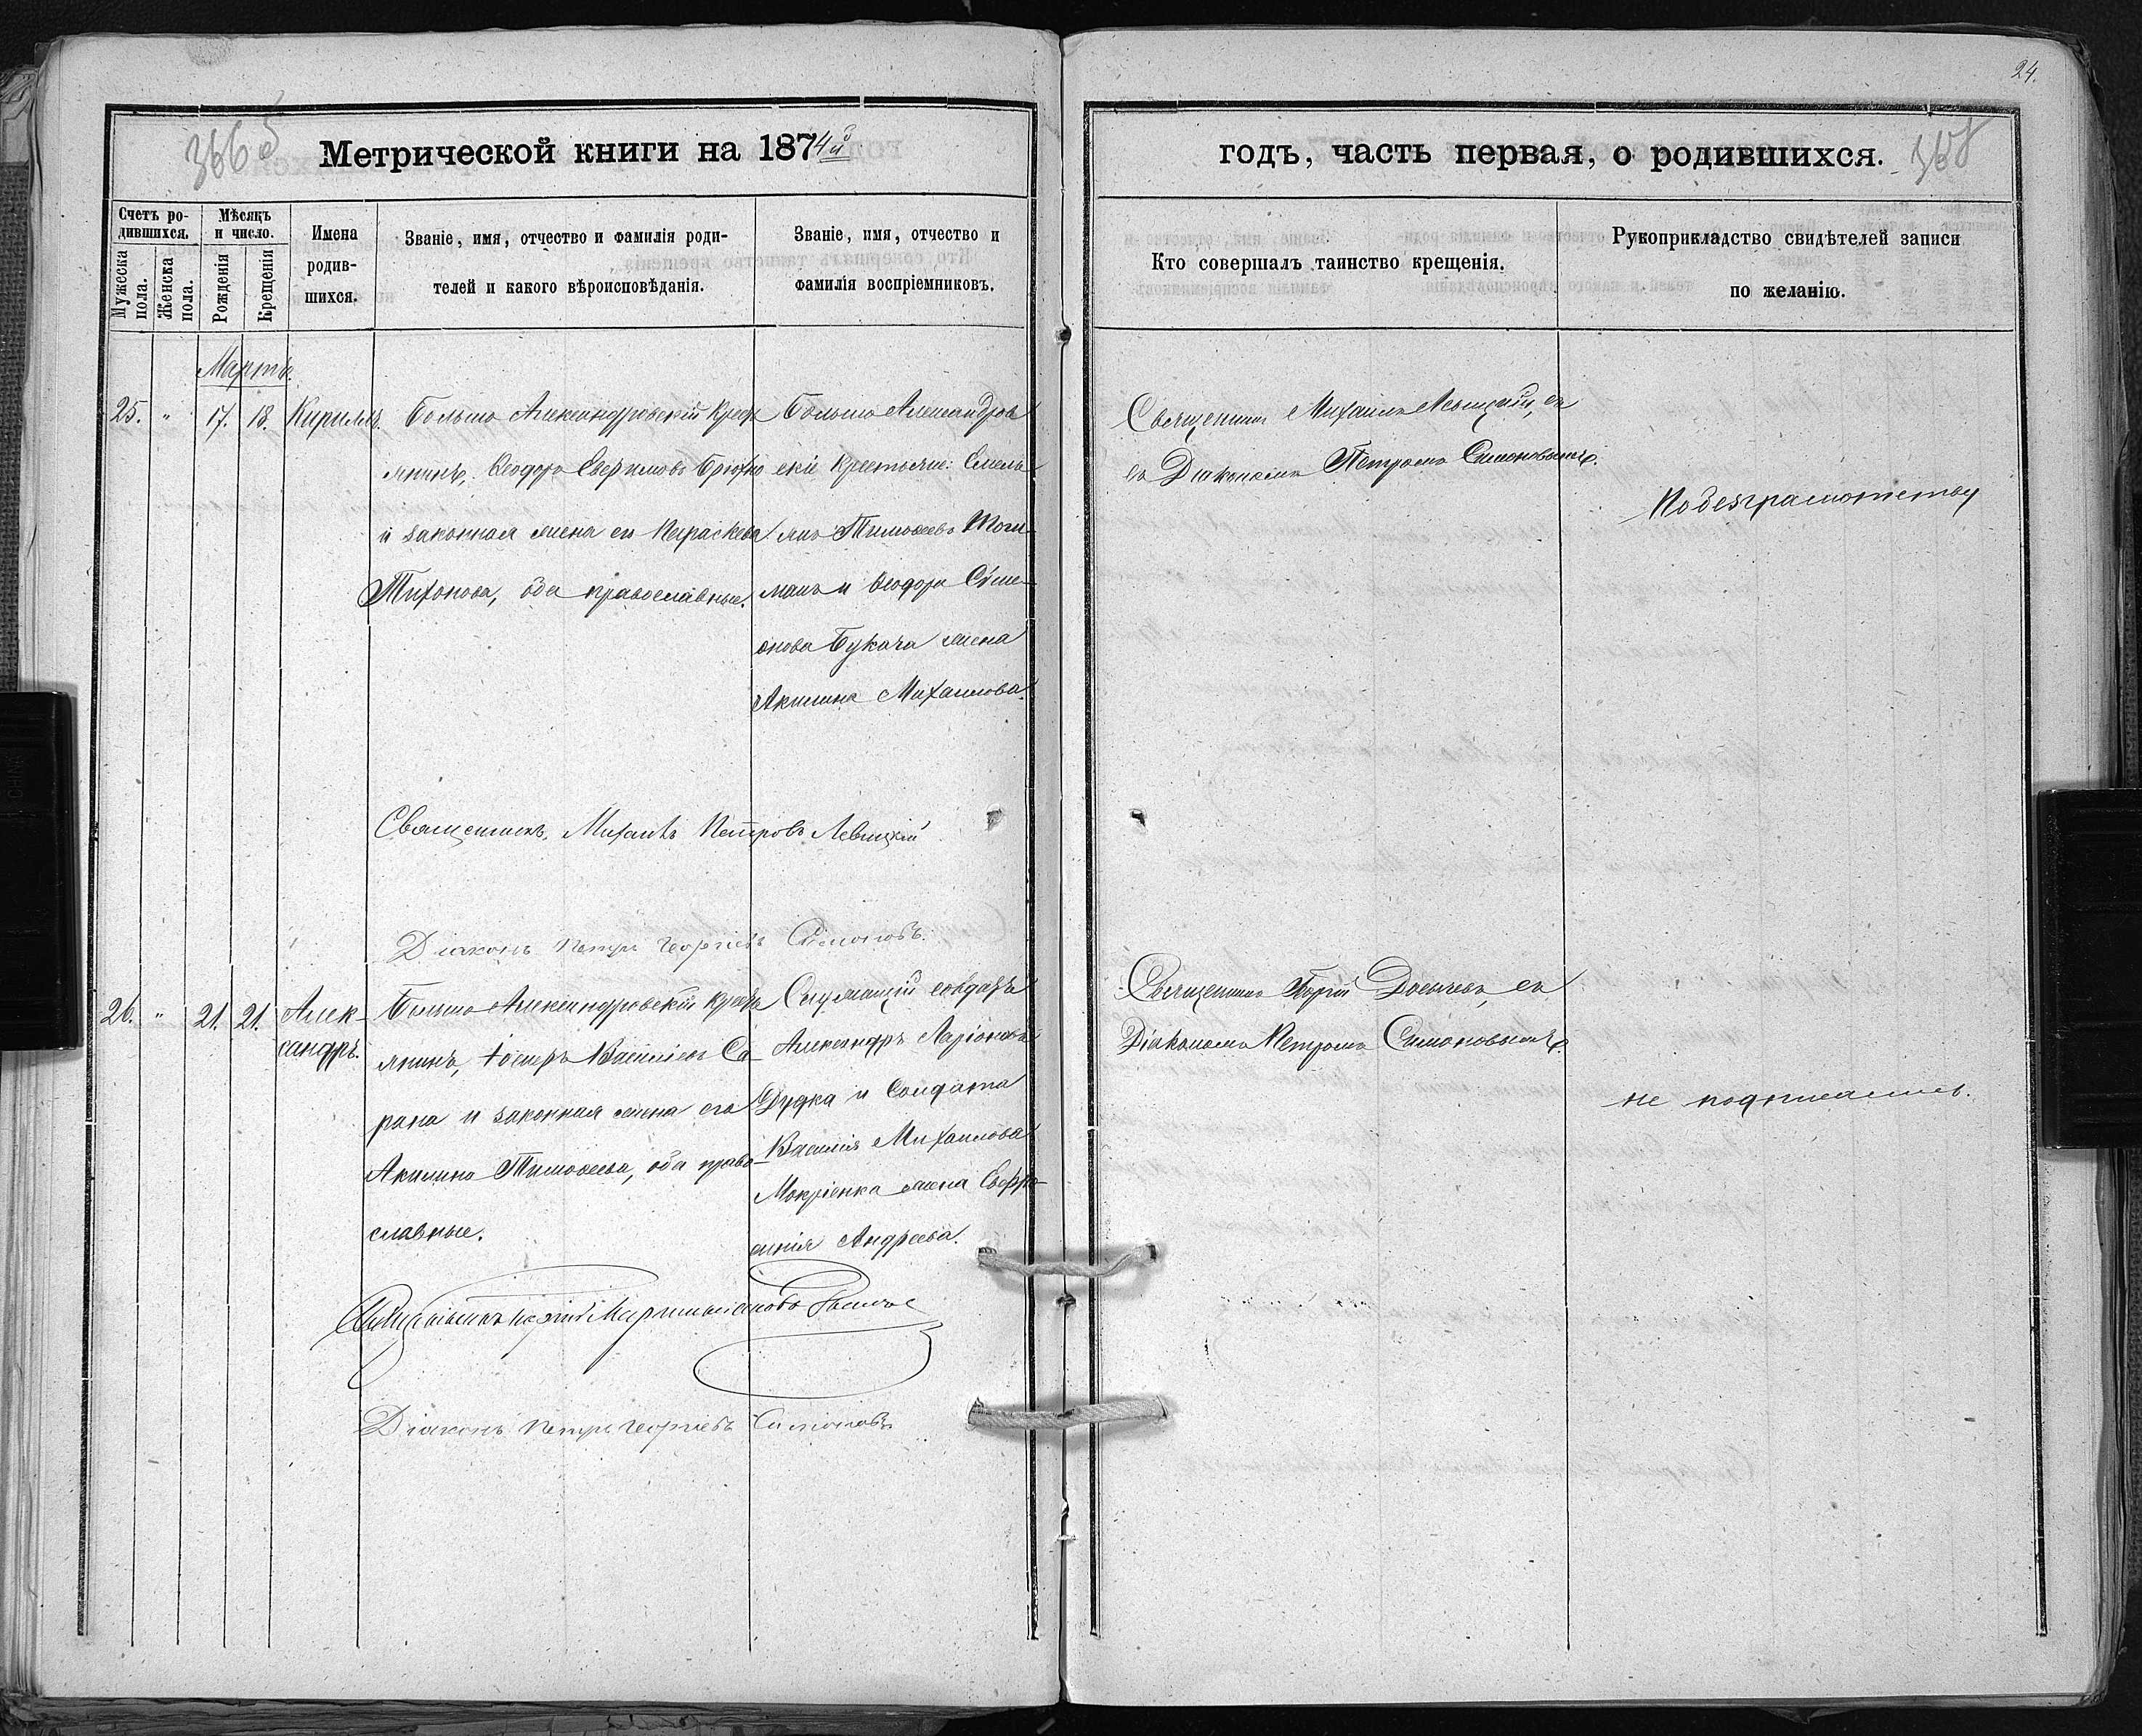 24.
366 б
Метрической книги на 1874й
годъ, часть первая, о родившихся.
Счетъ ро-
дившихся.
Мужеска
пола.
Женска
пола.
Мѣсяцъ
и число.
Рожденія
Крещенія
Имена
родив-
шихся.
Званіе, имя, отчество и фамилія роди-
телей и какого вѣроисповѣданія.
Званіе, имя, отчество и
фамилія воспріемниковъ.
Кто совершалъ таинство крещенія.
Рукоприкладство свидѣтелей записи
по желанію.
Мартъ.
25. " 17. 18. Кириллъ.
Больше Александровскій Кресть
янинъ, Ѳеодоръ Евфимовъ
и законная жена его Параскева
Тихонова, оба православные.
Больше Александров
скіе Крестьяне: Емель
янъ Тимоѳеевъ
и Ѳеодора Симе-
онова Букача жена
Акилина Михаилова.
Священникъ Михаилъ Левицкій, съ
съ Діакономъ Петромъ Симоновымъ.
По безграмотству
Священникъ Михаилъ Петровъ Левицкій
Діаконъ Петръ Георгіевъ Симоновъ.
26. " 21. 21. Алек-
сандръ.
Больше Александровскій Кресть
янинъ, Іосифъ Василіевъ Са-
рана и законная жена его
Акилина Тимоѳеева, оба право-
славные.
Служащій солдатъ
Александръ Ларіоновъ
Дудка и Солдата
Василія Михаилова
Мокріенка жена Евфро-
синія Андреева.
Священникъ Георгій съ
Діакономъ Петромъ Симоновымъ.
не подписались.
Священникъ Георгій
Діаконъ Петръ Георгіевъ Симоновъ